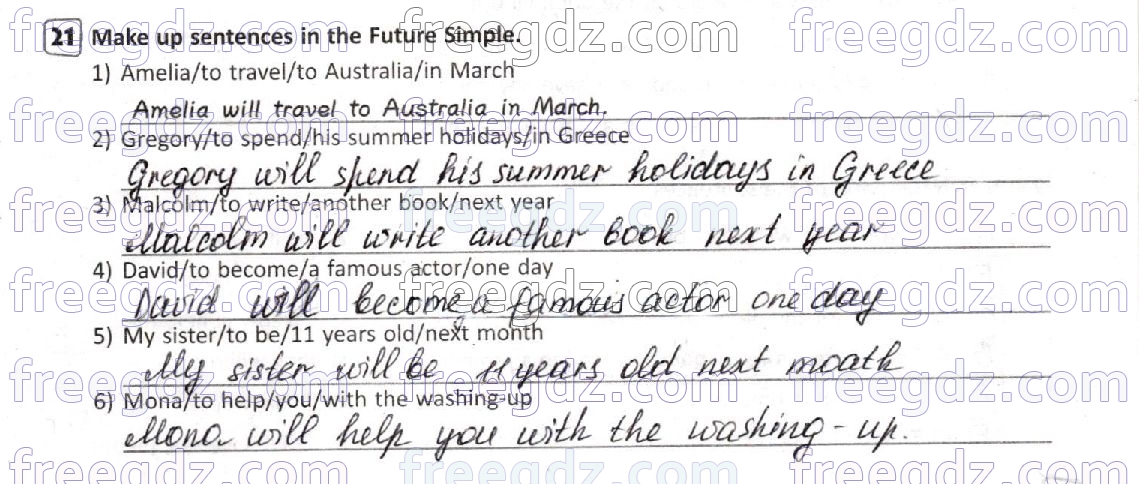 freegdz.com freegdz.com freegdz.com
21 Make up sentences in the Future Simple.
1) Amelia/to travel/to Australia/in March
Amelia will travel to Australia in March.
freegdz.com freegdz.com freegdz.com
2) Gregory/to spend/his summer holidays/in Greece
Gregory will spend his summer holidays in Greece
3) Malcolm/to write/another book/next year
freegdz.com freegdz.com freegdz.com
Malcolm will write another book next year
4) David/to become/a famous actor/one day
freegdz.com freegdz.com freegdz.com
David will become a famous actor one day
5) My sister/to be/11 years old/next month
My sister will be 11 years old next month
freegdz.com freegdz.com freegdz.com
6) Mona/to help/you/with the washing-up
Mona will help you with the washing-up.
freegdz.com freegdz.com freegdz.com